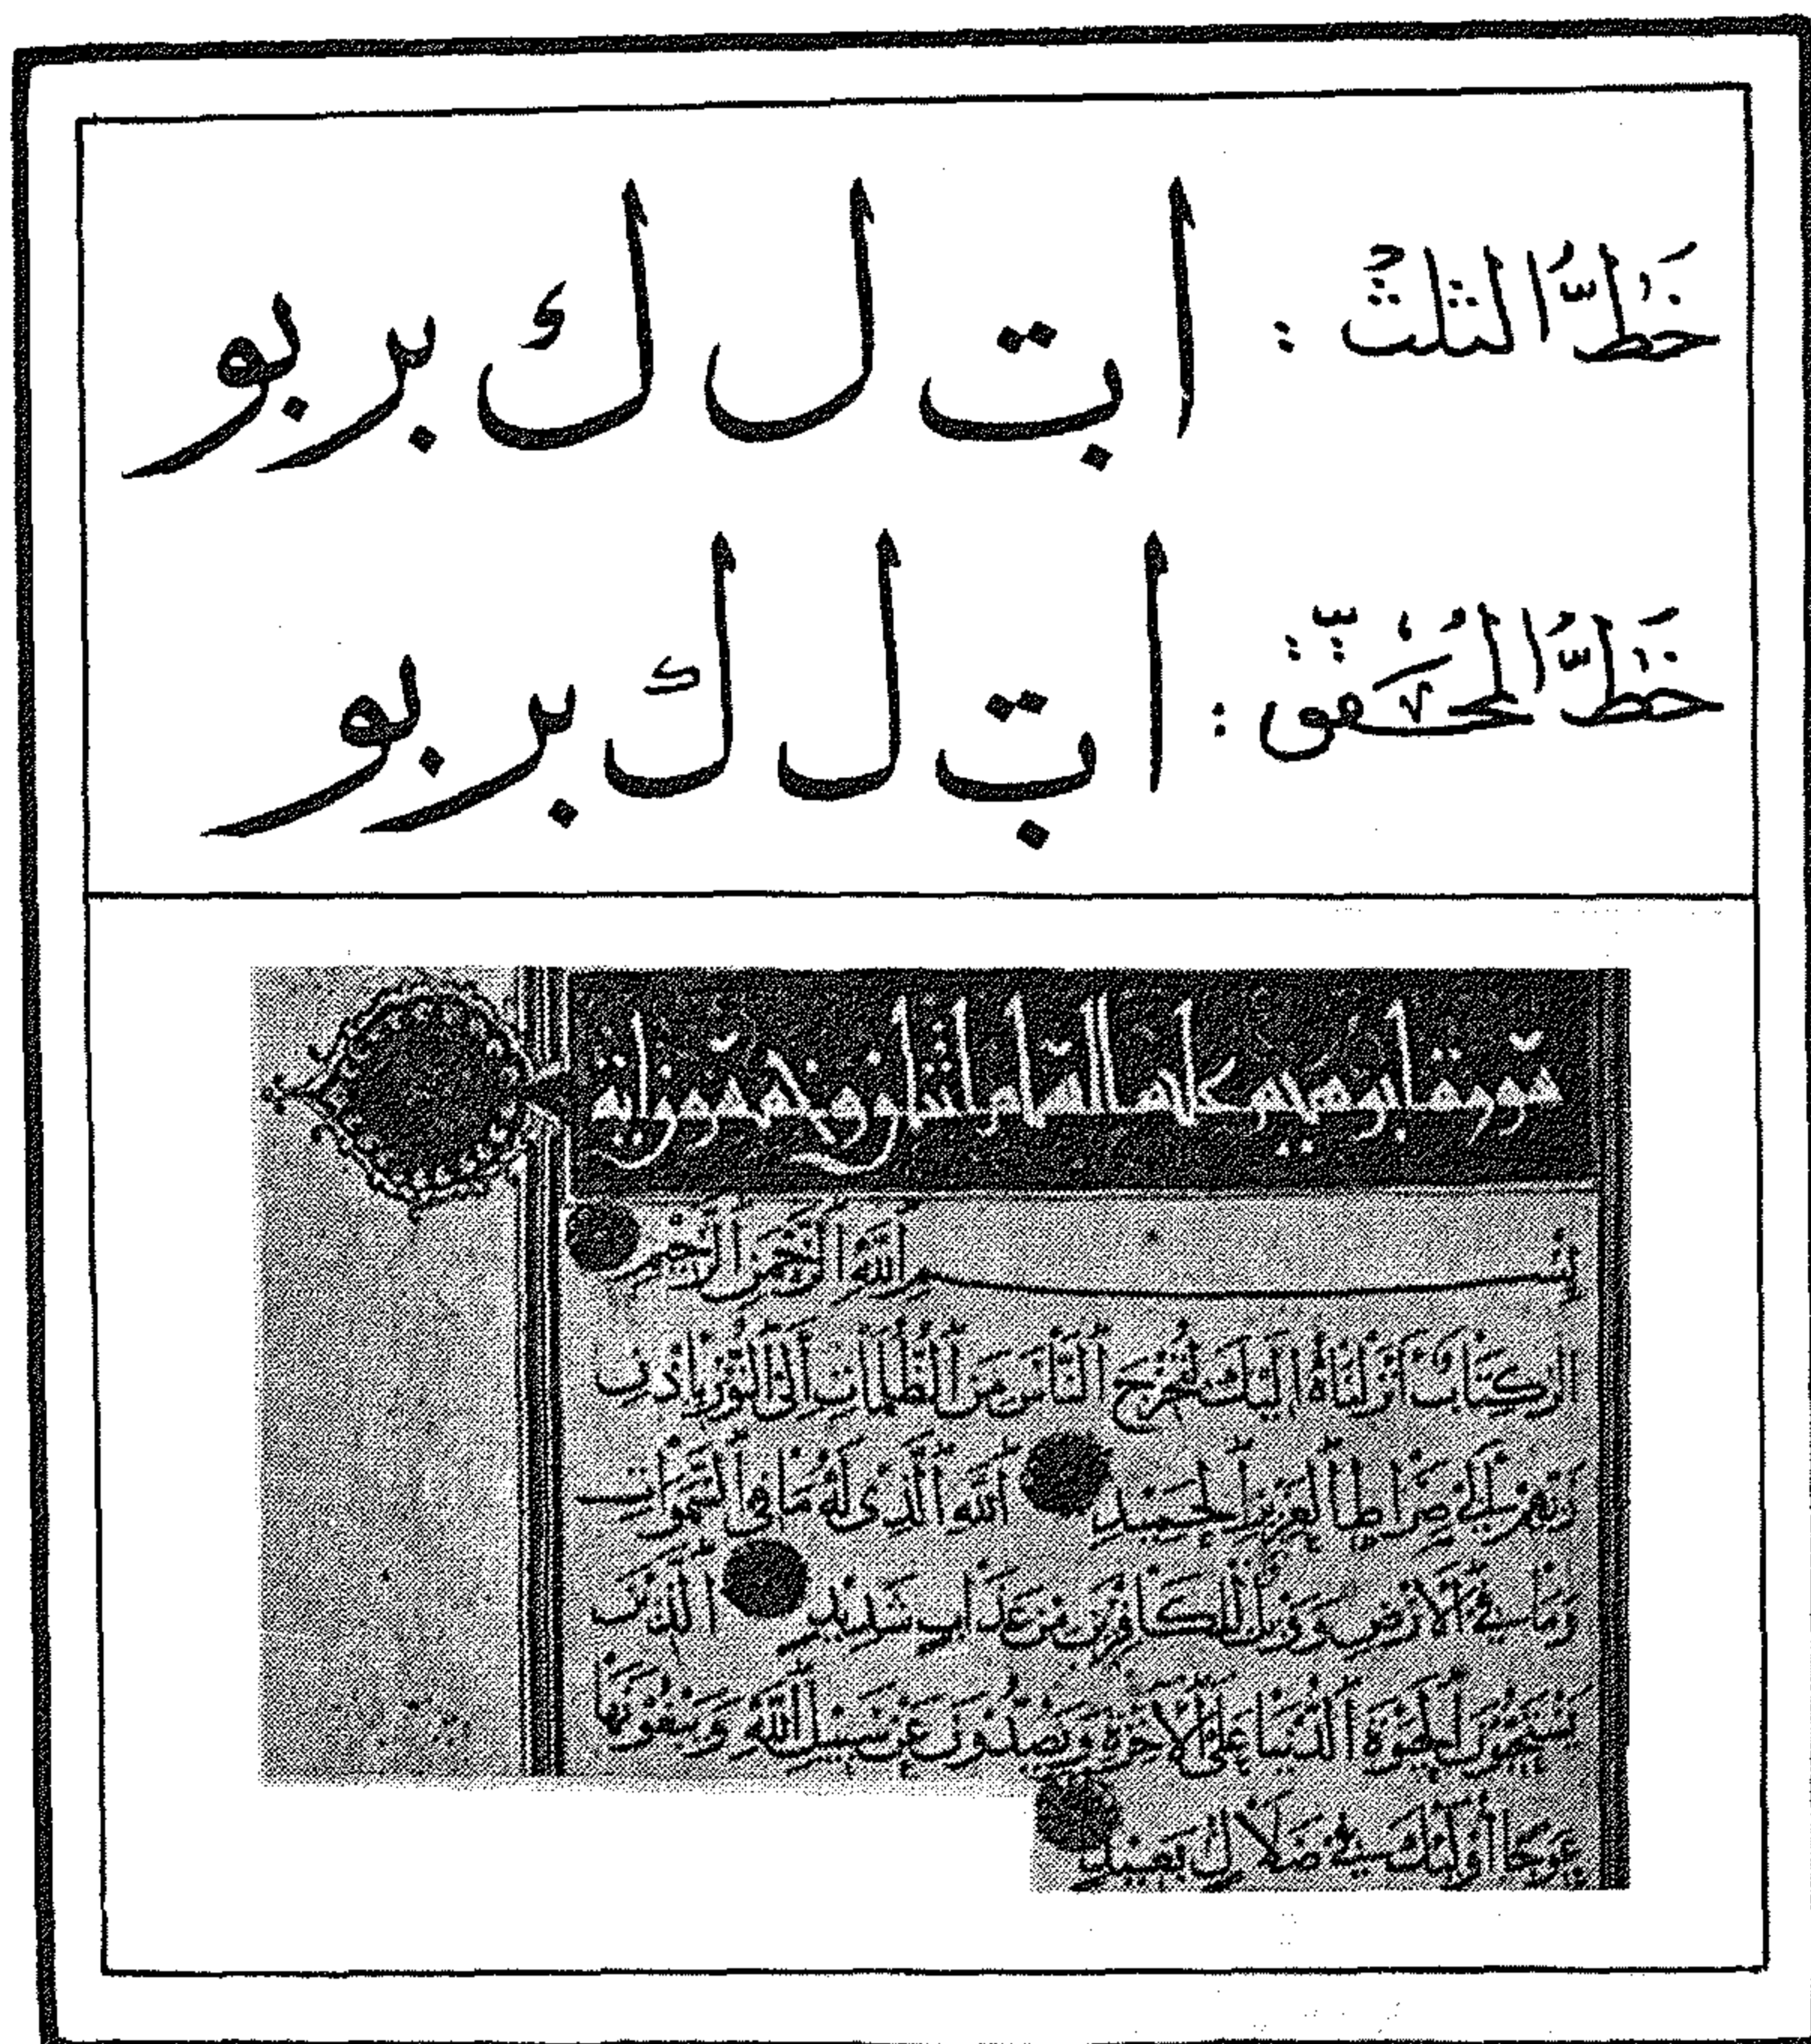 خَطُّ الثلث : ا بت ل ك بر بو
خَطُّ المُحَقَّق : ا بت ل ك بر بو
سورة ابرهيم عليه السلام اثنان وخمسون اية
بِسْمِ اللَّهِ الرَّحْمَنِ الرَّحِيمِ
الر كِتَابٌ أَنْزَلْنَاهُ إِلَيْكَ لِتُخْرِجَ النَّاسَ مِنَ الظُّلُمَاتِ إِلَى النُّورِ بِإِذْنِ
رَبِّهِمْ إِلَى صِرَاطِ الْعَزِيزِ الْحَمِيدِ اللَّهِ الَّذِي لَهُ مَا فِي السَّمَوَاتِ
وَمَا فِي الْأَرْضِ وَوَيْلٌ لِلْكَافِرِينَ مِنْ عَذَابٍ شَدِيدٍ الَّذِينَ
يَسْتَحِبُّونَ الْحَيَوةَ الدُّنْيَا عَلَى الْآخِرَةِ وَيَصُدُّونَ عَنْ سَبِيلِ اللَّهِ وَيَبْغُونَهَا
عِوَجًا أُولَئِكَ فِي ضَلَالٍ بَعِيدٍ